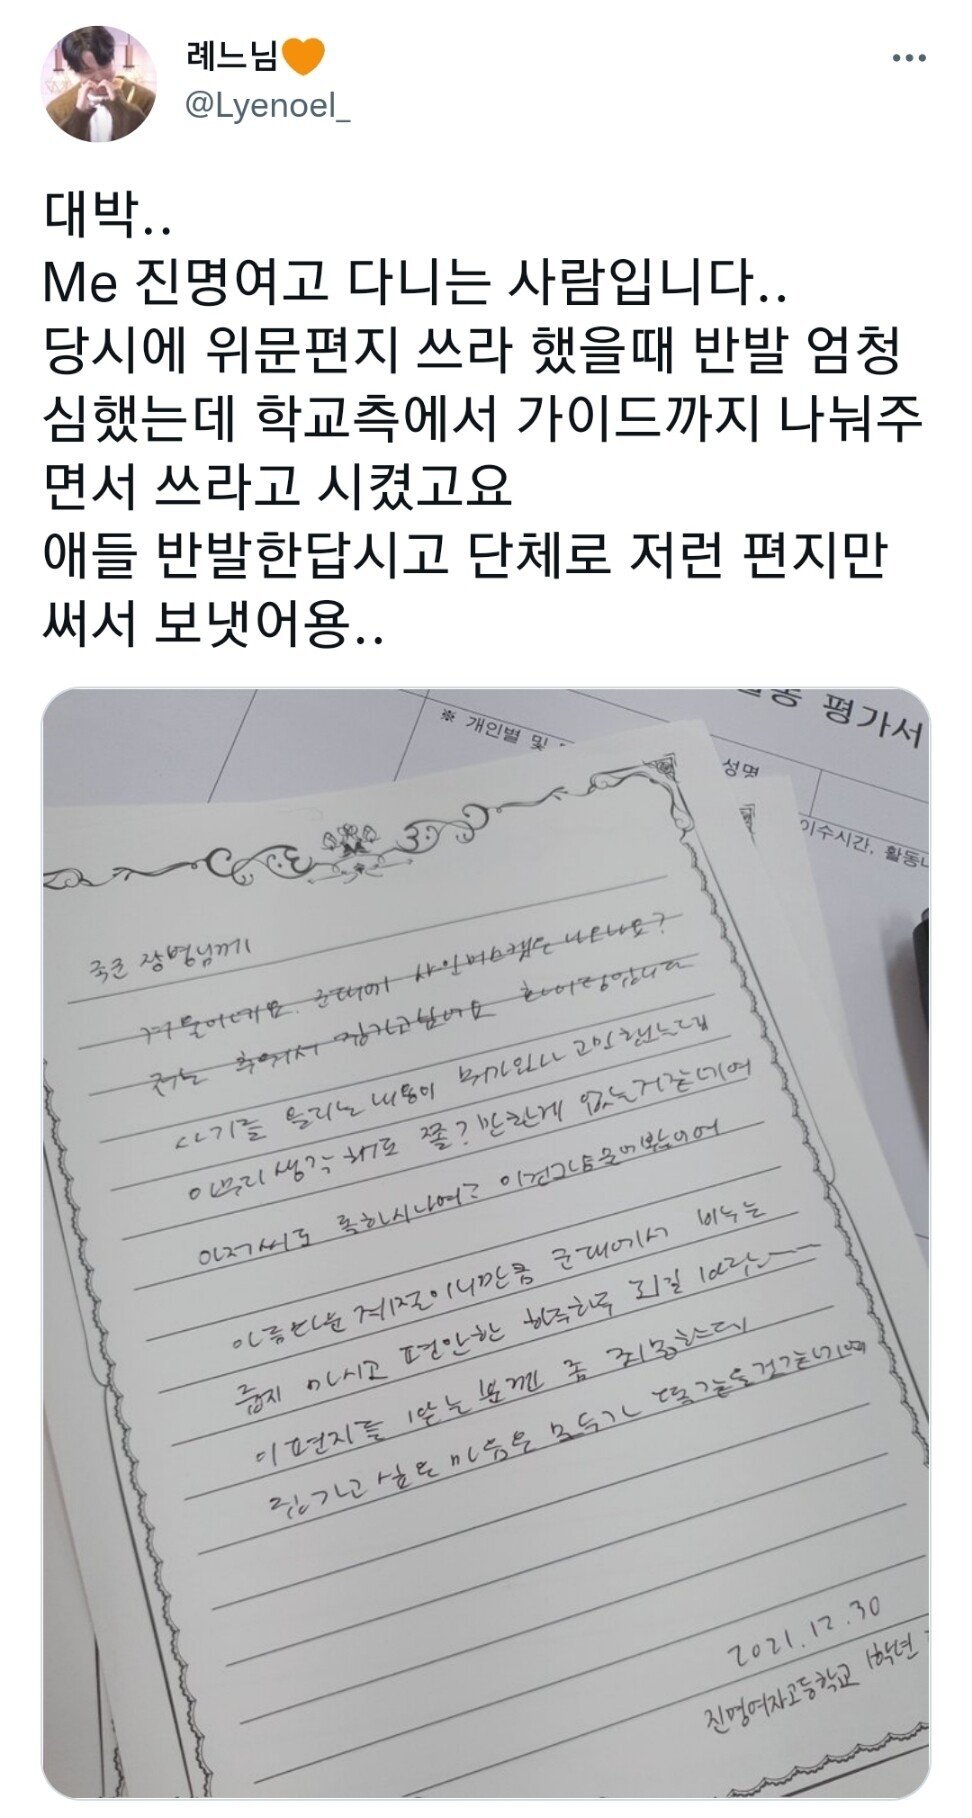 례느님🧡
@Lyenoel_
대박..
Me 진명여고 다니는 사람입니다..
당시에 위문편지 쓰라 했을때 반발 엄청
심했는데 학교측에서 가이드까지 나눠주
면서 쓰라고 시켰고요
애들 반발한답시고 단체로 저런 편지만
써서 보냇어용..
평가서
※ 개인별 및
성명
이수시간, 활동
국군 장병님께
겨울이네요. 군대에 사인버스켓은 나오나요?
저는 추워서 집가고싶네요 화이팅입니다
사기를 올리는 내용이 뭐가있나 고민했는데
아무리 생각해도 딱히 없는거같네여
이 저씨도
아름다운 계절이니만큼 군대에서 비누는
줍지 마시고 편안한 하루하루 되길 바라는~~~
이 편지를 받는 분껜 좀 죄송한데
집가고 싶은 마음은 모두가 똑같을것같네여
2021.12.30
진명여자고등학교 1학년